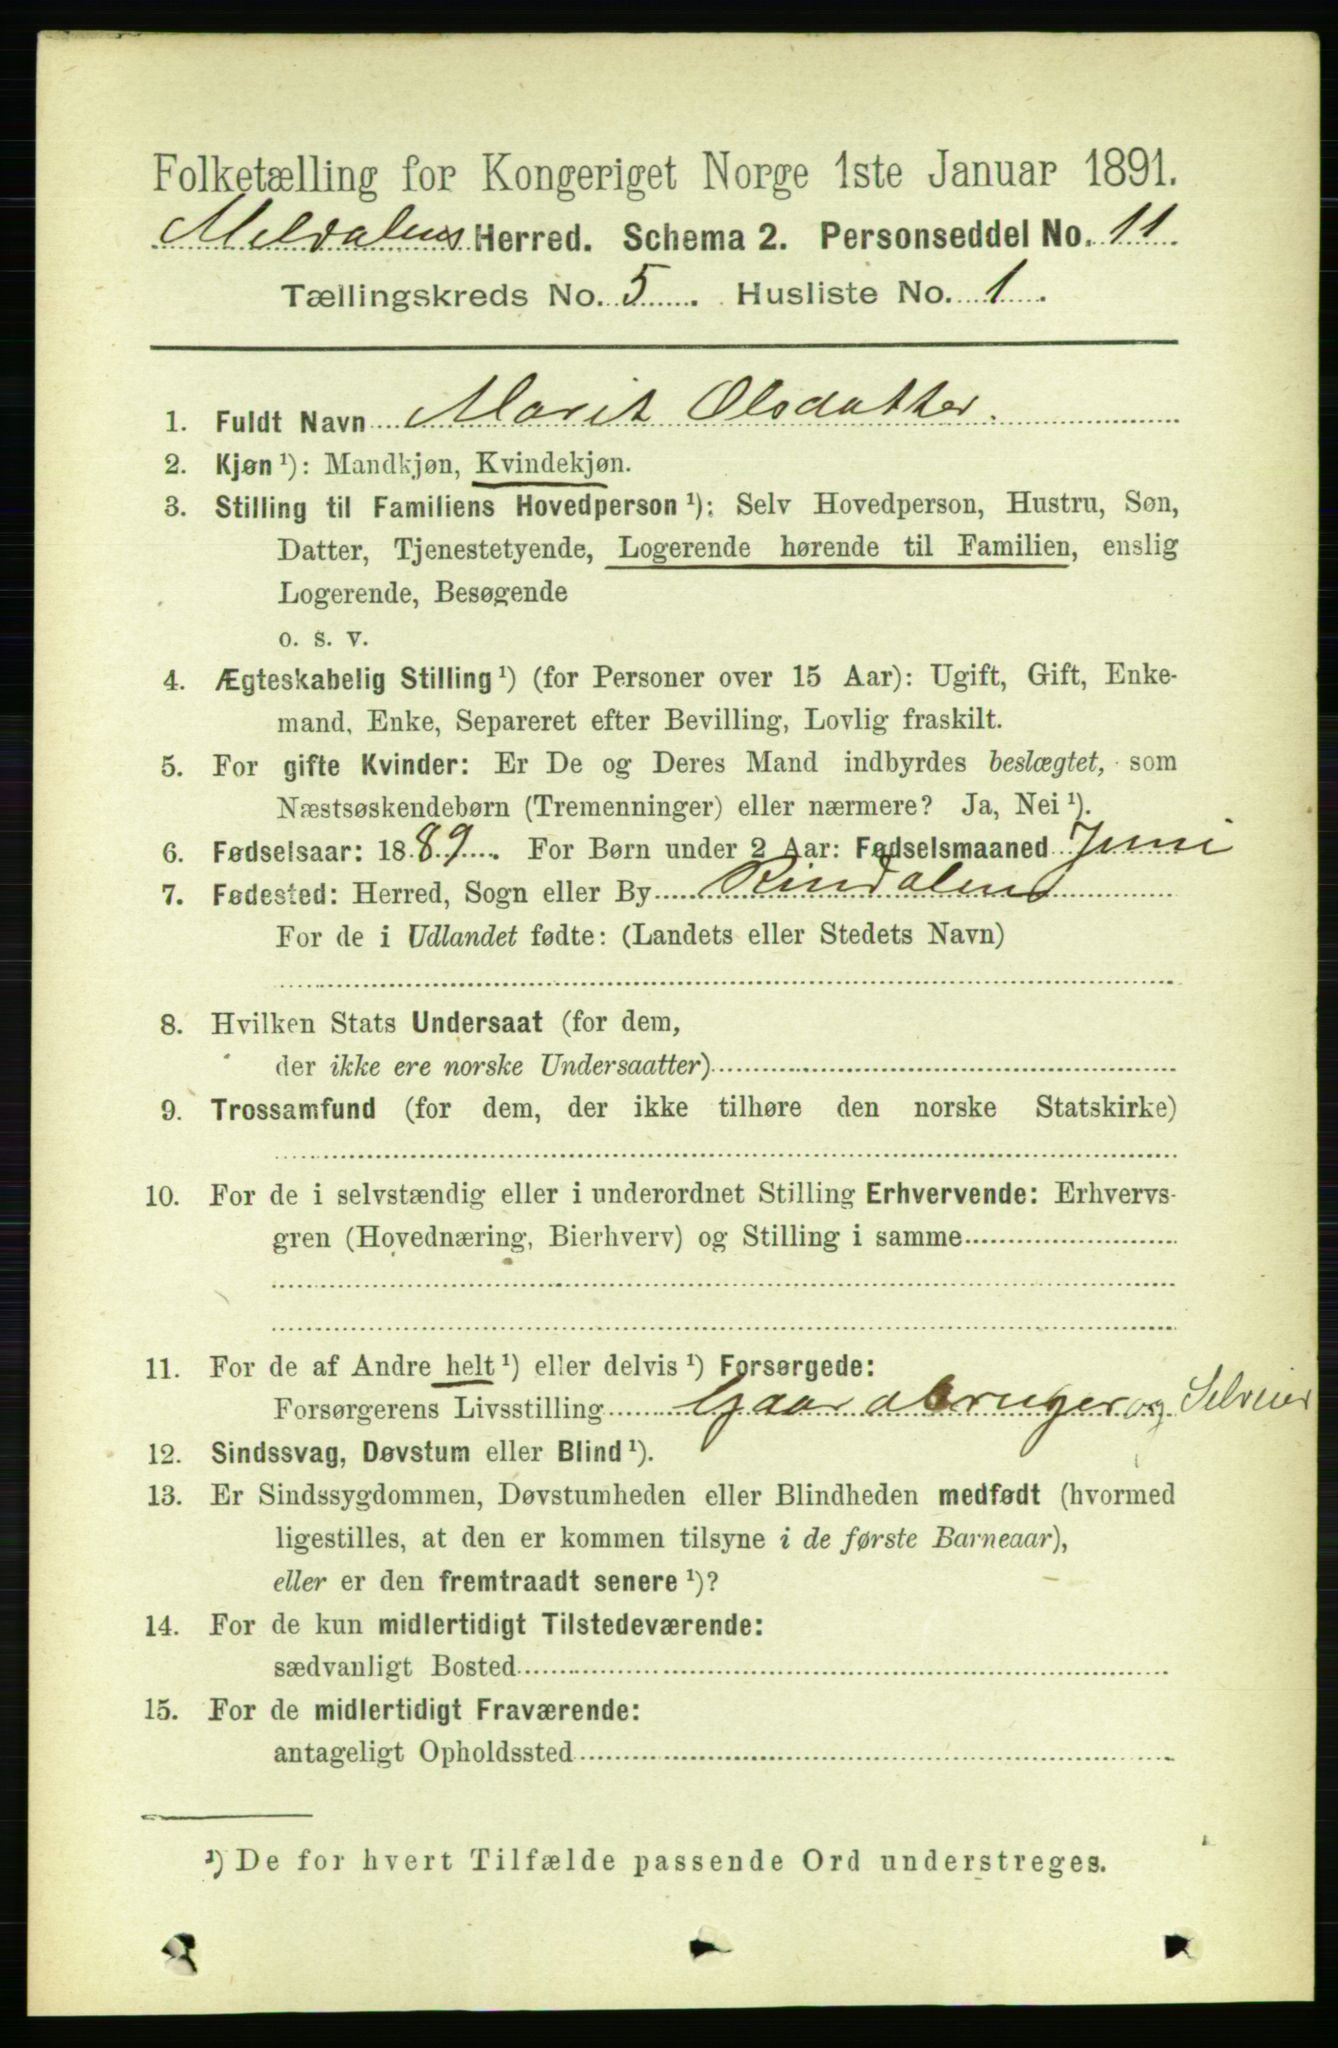 Folketælling for Kongeriget Norge 1ste Januar 1891.
Meldalens Herred. Schema 2. Personseddel No. 11.
Tællingskreds No. 5. Husliste No. 1.
1. Fuldt Navn Marit Olsdatter.
2. Kjøn ¹): Mandkjøn, Kvindekjøn.
3. Stilling til Familiens Hovedperson ¹): Selv Hovedperson, Hustru, Søn,
Datter, Tjenestetyende, Logerende hørende til Familien, enslig
Logerende, Besøgende
o. s. v.
4. Ægteskabelig Stilling ¹) (for Personer over 15 Aar): Ugift, Gift, Enke-
mand, Enke, Separeret efter Bevilling, Lovlig fraskilt.
5. For gifte Kvinder: Er De og Deres Mand indbyrdes beslægtet, som
Næstsøskendebørn (Tremenninger) eller nærmere? Ja, Nei ¹).
6. Fødselsaar: 1889. For Børn under 2 Aar: Fødselsmaaned Juni
7. Fødested: Herred, Sogn eller By Rindalens
For de i Udlandet fødte: (Landets eller Stedets Navn)
8. Hvilken Stats Undersaat (for dem,
der ikke ere norske Undersaatter)
9. Trossamfund (for dem, der ikke tilhøre den norske Statskirke)
10. For de i selvstændig eller i underordnet Stilling Erhvervende: Erhvervs-
gren (Hovednæring, Bierhverv) og Stilling i samme
11. For de af Andre helt ¹) eller delvis ¹) Forsørgede:
Forsørgerens Livsstilling Gaardbruger og Selveier
12. Sindssvag, Døvstum eller Blind ¹).
13. Er Sindssygdommen, Døvstumheden eller Blindheden medfødt (hvormed
ligestilles, at den er kommen tilsyne i de første Barneaar),
eller er den fremtraadt senere ¹)?
14. For de kun midlertidigt Tilstedeværende:
sædvanligt Bosted
15. For de midlertidigt Fraværende:
antageligt Opholdssted
¹) De for hvert Tilfælde passende Ord understreges.